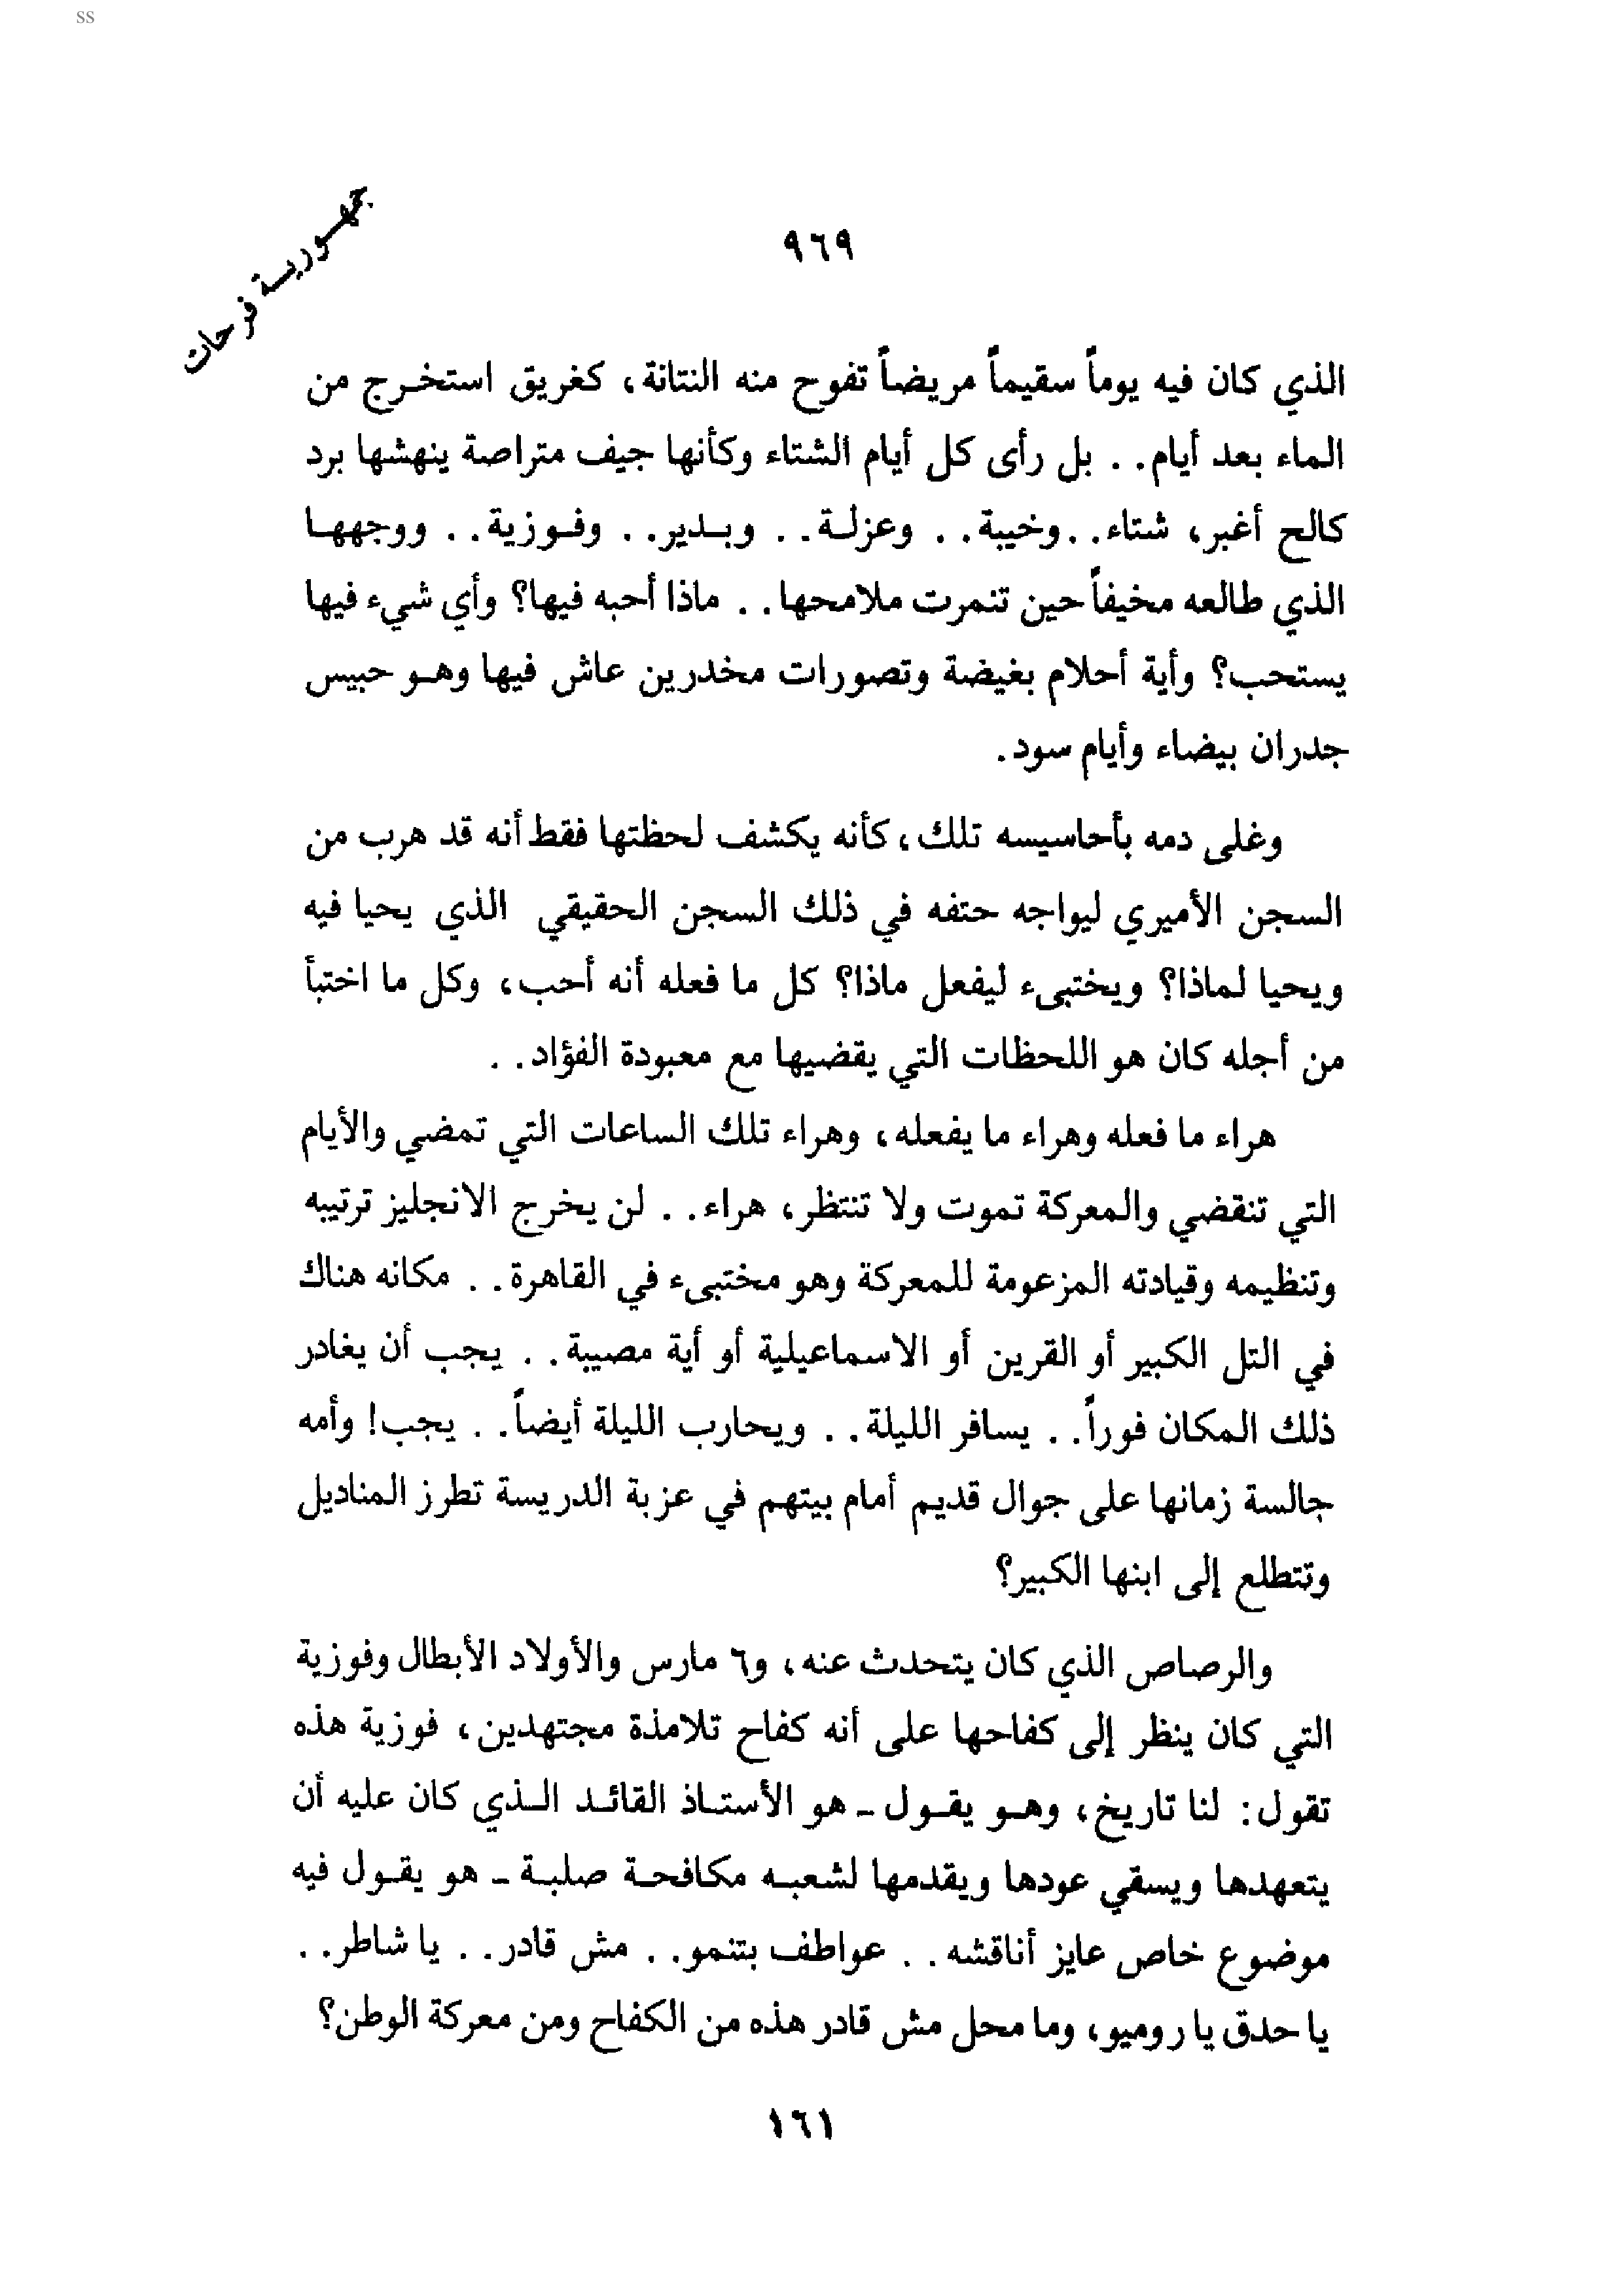 ss
جمهورية فرحات
٩٦٩
الذي كان فيه يوماً سقيماً مريضاً تفوح منه النتانة، كغريق استخرج من
الماء بعد أيام.. بل رأى كل أيام الشتاء وكأنها جيف متراصة ينهشها برد
كالح أغبر، شتاء.. وخيبة.. وعزلة.. وبدير.. وفوزية.. ووجهها
الذي طالعه مخيفاً حين تنمرت ملامحها.. ماذا أحبه فيها؟ وأي شيء فيها
يستحب؟ وأية أحلام بغيضة وتصورات مخدرين عاش فيها وهو حبيس
جدران بيضاء وأيام سود.
وغلى دمه بأحاسيسه تلك، كأنه يكشف لحظتها فقط أنه قد هرب من
السجن الأميري ليواجه حتفه في ذلك السجن الحقيقي الذي يحيا فيه
ويحيا لماذا؟ ويختبىء ليفعل ماذا؟ كل ما فعله أنه أحب، وكل ما اختبأ
من أجله كان هو اللحظات التي يقضيها مع معبودة الفؤاد..
هراء ما فعله وهراء ما يفعله، وهراء تلك الساعات التي تمضي والأيام
التي تنقضي والمعركة تموت ولا تنتظر، هراء.. لن يخرج الانجليز ترتيبه
وتنظيمه وقيادته المزعومة للمعركة وهو مختبىء في القاهرة.. مكانه هناك
في التل الكبير أو القرين أو الاسماعيلية أو أية مصيبة.. يجب أن يغادر
ذلك المكان فوراً.. يسافر الليلة.. ويحارب الليلة أيضاً.. يجب! وأمه
جالسة زمانها على جوال قديم أمام بيتهم في عزبة الدريسة تطرز المناديل
وتتطلع إلى ابنها الكبير؟
والرصاص الذي كان يتحدث عنه، و٦ مارس والأولاد الأبطال وفوزية
التي كان ينظر إلى كفاحها على أنه كفاح تلامذة مجتهدين، فوزية هذه
تقول: لنا تاريخ، وهو يقول - هو الأستاذ القائد الذي كان عليه أن
يتعهدها ويسقي عودها ويقدمها لشعبه مكافحة صلبة - هو يقول فيه
موضوع خاص عايز أناقشه.. عواطف بتنمو.. مش قادر.. يا شاطر..
يا حدق يا روميو، وما محل مش قادر هذه من الكفاح ومن معركة الوطن؟
١٦١